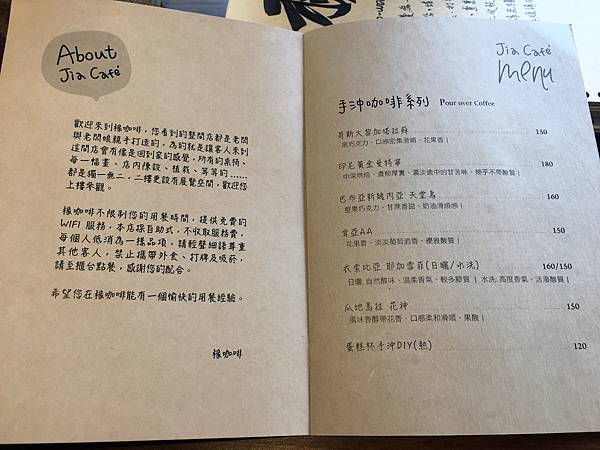 About
Jia Café
歡迎來到椽咖啡，您看到的整間店都是老闆
與老闆娘親手打造的，為的就是讓客人來到
這間店會有像是回到家的感覺，所有的桌椅、
每一幅畫、店內陳設、植栽、等等的……
都是獨一無二，二樓更設有展覽空間，歡迎您
上樓參觀。
椽咖啡不限制您的用餐時間，提供免費的
WIFI 服務，本店採自助式，不收取服務費，
每個人低消為一樣品項，請輕聲細語尊重
其他客人，禁止攜帶外食、打牌及吸菸，
請至櫃台點餐，感謝您的配合。
希望您在椽咖啡能有一個愉快的用餐經驗。
椽咖啡
Jia Café
menu
手沖咖啡系列 Pour over Coffee
哥斯大黎加塔拉蘇 150
黑巧克力、口感密集滑順、花果香 |
印尼黃金曼特寧 180
中深烘焙、濃郁厚實、濃淡適中的甘苦味、幾乎不帶酸質 |
巴布亞新幾內亞 天堂鳥 160
堅果巧克力、甘蔗香甜、奶油滑順感 |
肯亞AA 150
花果香、淡淡葡萄酒香、優雅酸質 |
衣索比亞 耶加雪菲(日曬/水洗) 160/150
日曬.自然醇味、溫柔香氣、較多膠質 | 水洗.高度香氣、活潑酸質 |
瓜地馬拉 花神 150
風味香醇帶花香、口感柔和滑順、果酸 |
蛋糕杯手沖DIY(熱) 120